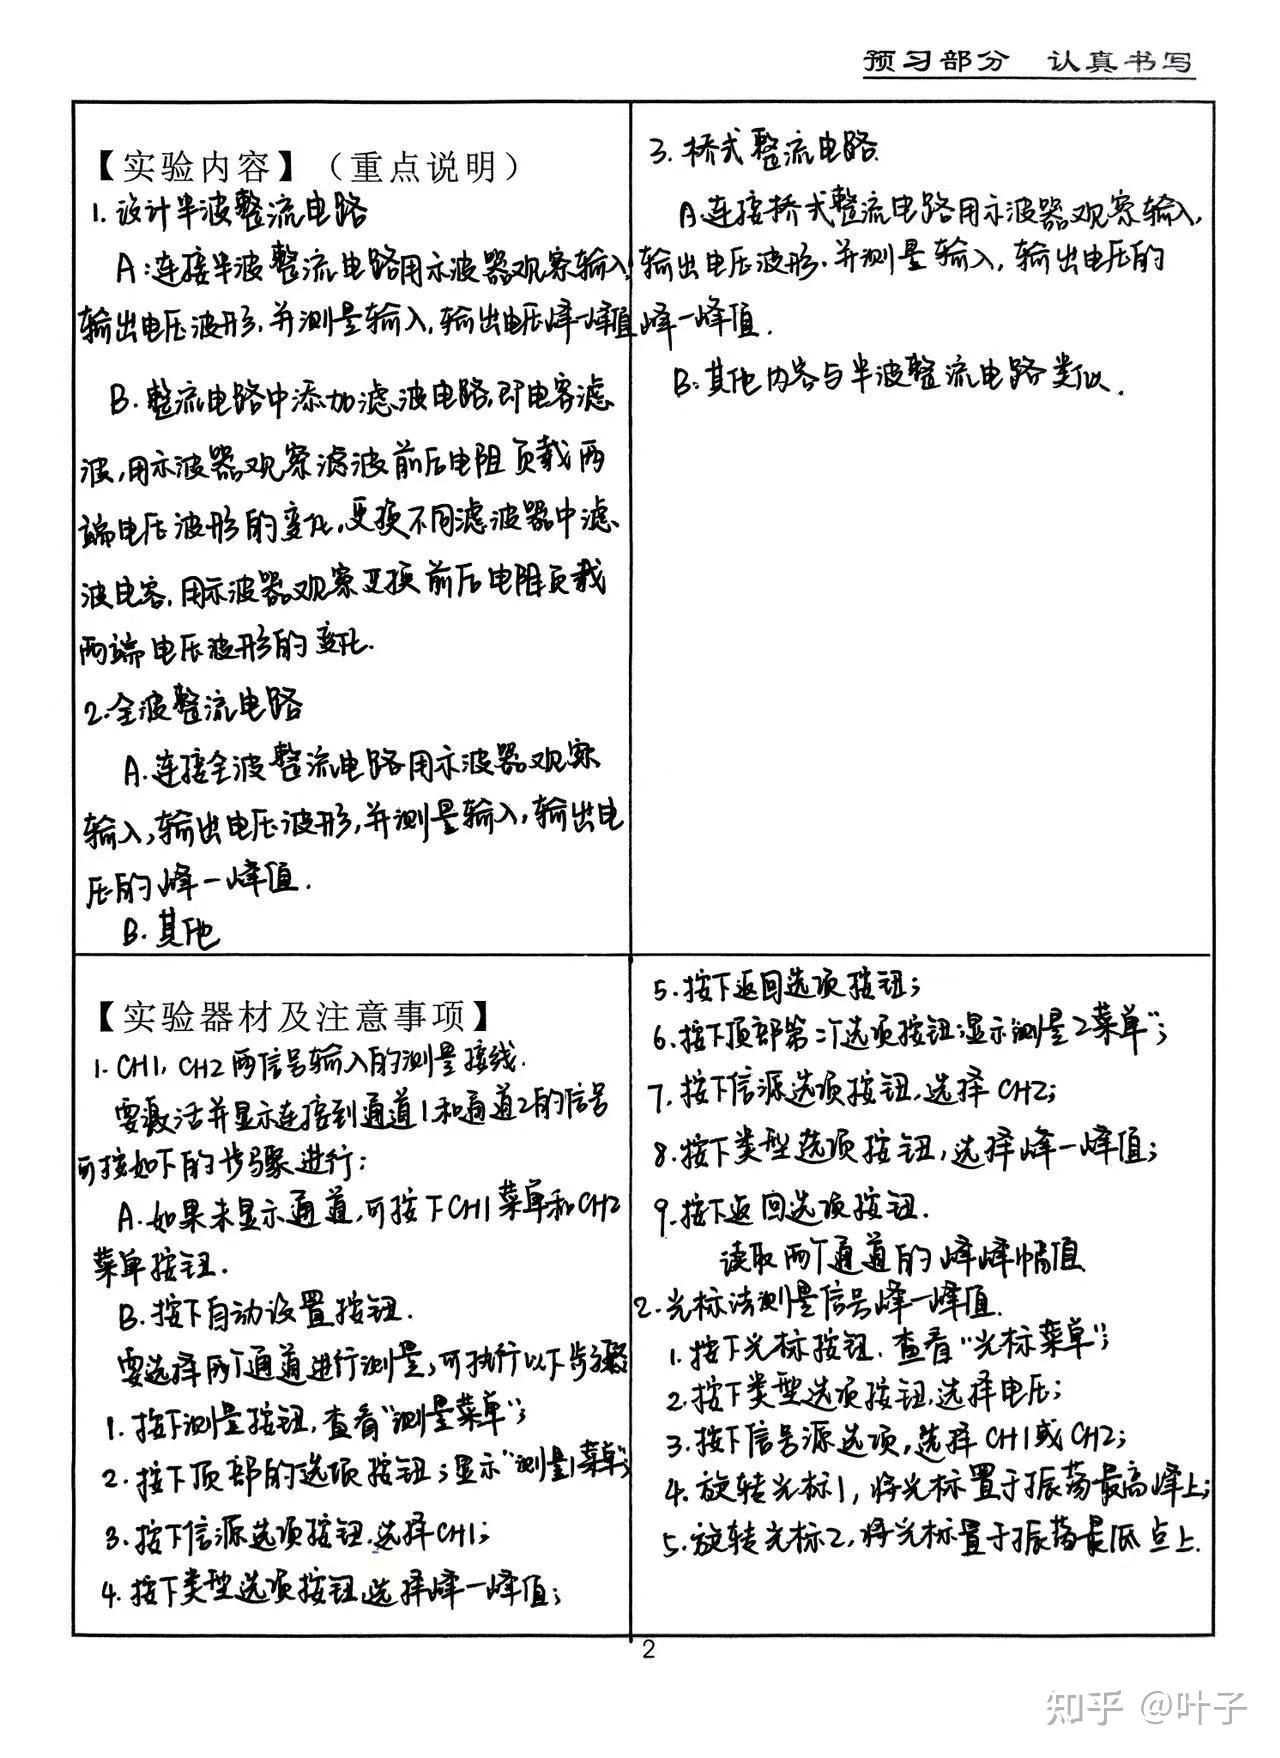 预习部分 认真书写
【实验内容】（重点说明）
1.设计半波整流电路
A:连接半波整流电路用示波器观察输入,
输出电压波形,并测量输入,输出电压峰一峰值
B.整流电路中添加滤波电路,即电容滤
波,用示波器观察滤波前后电阻负载两
端电压波形的变化,更换不同滤波器中滤
波电容,用示波器观察更换前后电阻负载
两端电压波形的变化.
2.全波整流电路
A.连接全波整流电路用示波器观察
输入,输出电压波形,并测量输入,输出电
压的峰一峰值.
B.其他
3.桥式整流电路.
A.连接桥式整流电路用示波器观察输入,
输出电压波形.并测量输入,输出电压的
峰一峰值.
B:其他内容与半波整流电路类似.
【实验器材及注意事项】
1.CH1,CH2两信号输入的测量接线.
要激活并显示连接到通道1和通道2的信号
可按如下的步骤进行:
A.如果未显示通道,可按下CH1菜单和CH2
菜单按钮.
B.按下自动设置按钮.
要选择两个通道进行测量,可执行以下步骤
1.按下测量按钮,查看“测量菜单”;
2.按下顶部的选项按钮;显示“测量1菜单”;
3.按下信源选项按钮,选择CH1;
4.按下类型选项按钮,选择峰一峰值;
5.按下返回选项按钮;
6.按下顶部第二个选项按钮;显示“测量2菜单”;
7.按下信源选项按钮,选择CH2;
8.按下类型选项按钮,选择峰一峰值;
9.按下返回选项按钮.
读取两个通道的峰峰幅值
2.光标法测量信号峰一峰值.
1.按下光标按钮.查看“光标菜单”;
2.按下类型选项按钮,选择电压;
3.按下信号源选项,选择CH1或CH2;
4.旋转光标1,将光标置于振荡最高峰上;
5.旋转光标2,将光标置于振荡最低点上.
2
知乎 @叶子